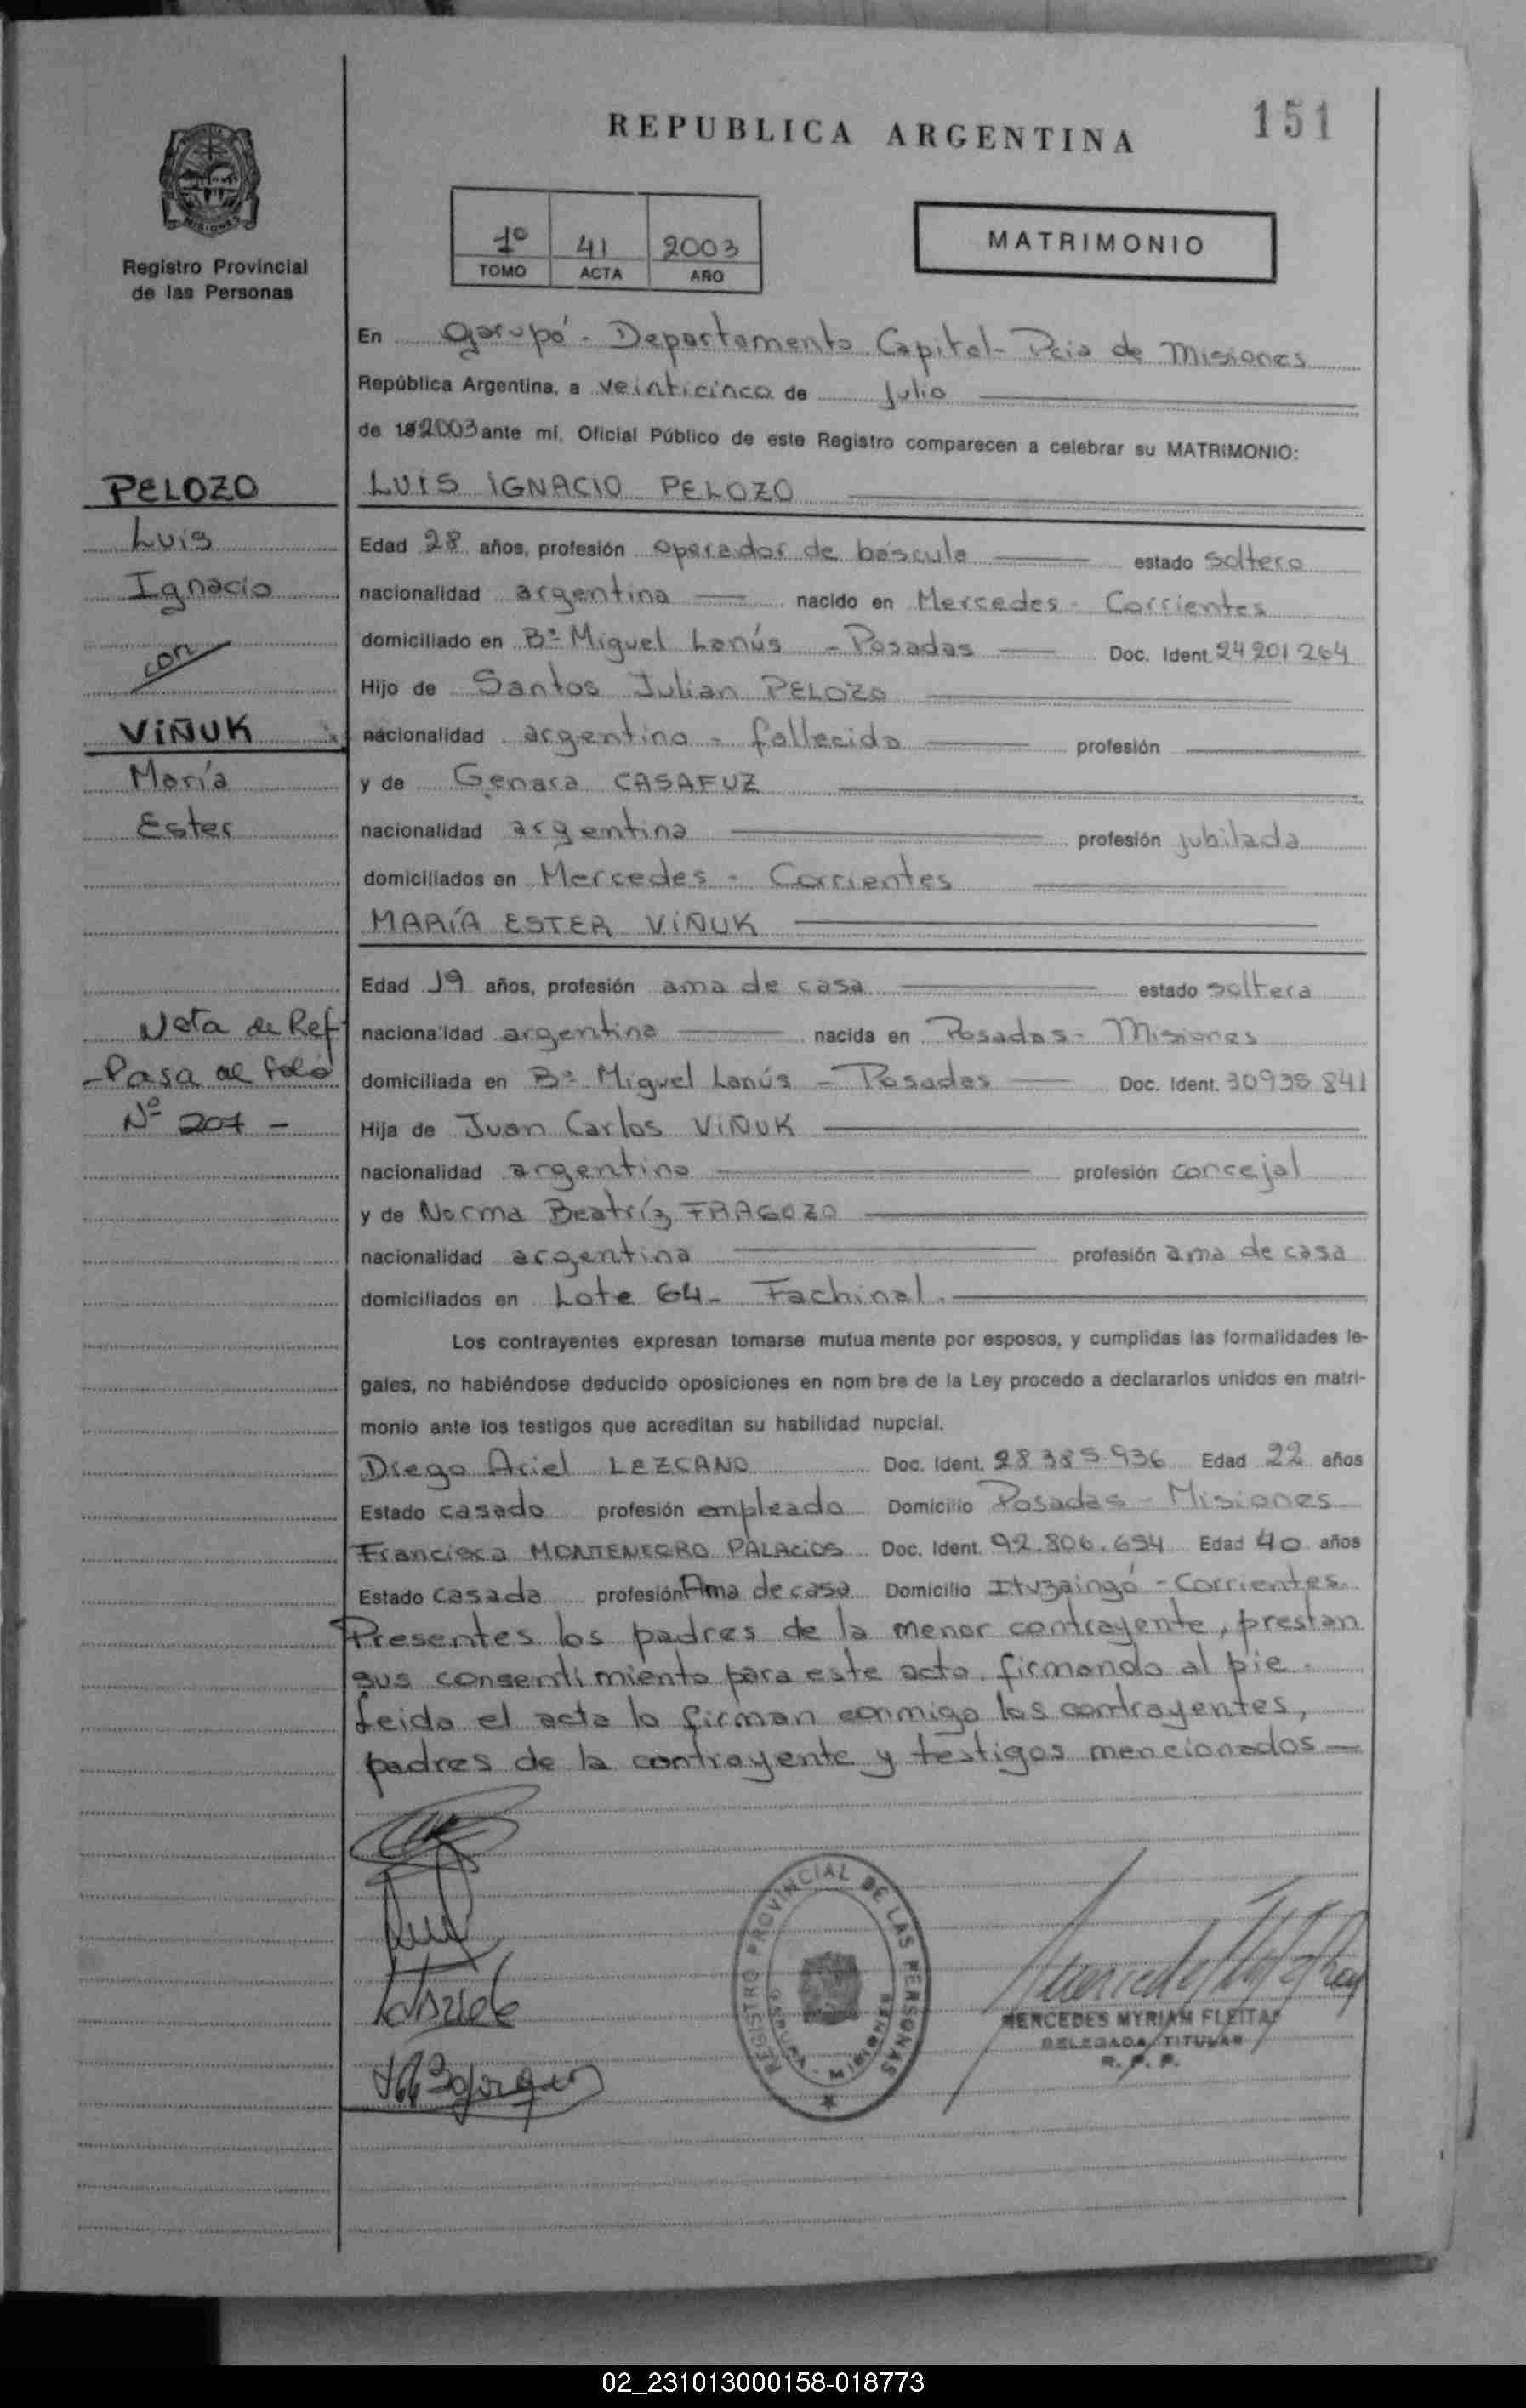 REPUBLICA ARGENTINA
151
Registro Provincial
de las Personas
1º 41 2003
TOMO ACTA AÑO
MATRIMONIO
En Garupá - Departamento Capital - Pcia de Misiones
República Argentina, a veinticinco de Julio
de 2003 ante mí, Oficial Público de este Registro comparecen a celebrar su MATRIMONIO:
PELOZO
Luis
Ignacio
con
VIÑUK
María
Ester
Nota de Ref
-Pasa al folio
Nº 207 -
LUIS IGNACIO PELOZO
Edad 28 años, profesión operador de báscula estado soltero
nacionalidad argentina nacido en Mercedes - Corrientes
domiciliado en Bº Miguel Lanús - Posadas Doc. Ident. 24201264
Hijo de Santos Julian PELOZO
nacionalidad argentino - fallecido profesión
y de Genara CASAFUZ
nacionalidad argentina profesión jubilada
domiciliados en Mercedes - Corrientes
MARÍA ESTER VIÑUK
Edad 19 años, profesión ama de casa estado soltera
nacionalidad argentina nacida en Posadas - Misiones
domiciliada en Bº Miguel Lanús - Posadas Doc. Ident. 30935841
Hija de Juan Carlos VIÑUK
nacionalidad argentino profesión concejal
y de Norma Beatríz FRAGOZO
nacionalidad argentina profesión ama de casa
domiciliados en Lote 64 - Fachinal.
Los contrayentes expresan tomarse mutua mente por esposos, y cumplidas las formalidades le-
gales, no habiéndose deducido oposiciones en nom bre de la Ley procedo a declararlos unidos en matri-
monio ante los testigos que acreditan su habilidad nupcial.
Diego Ariel LEZCANO Doc. Ident. 28.385.936 Edad 22 años
Estado casado profesión empleado Domicilio Posadas - Misiones
Francisca MONTENEGRO PALACIOS Doc. Ident. 92.806.654 Edad 40 años
Estado casada profesión Ama de casa Domicilio Ituzaingó - Corrientes.
Presentes los padres de la menor contrayente, prestan
sus consentimiento para este acto firmando al pie.
Leida el acta la firman conmigo los contrayentes,
padres de la contrayente y testigos mencionados
REGISTRO PROVINCIAL DE LAS PERSONAS
MERCEDES MYRIAM FLEITAS
DELEGADA TITULAR
R. P. P.
02_231013000158-018773